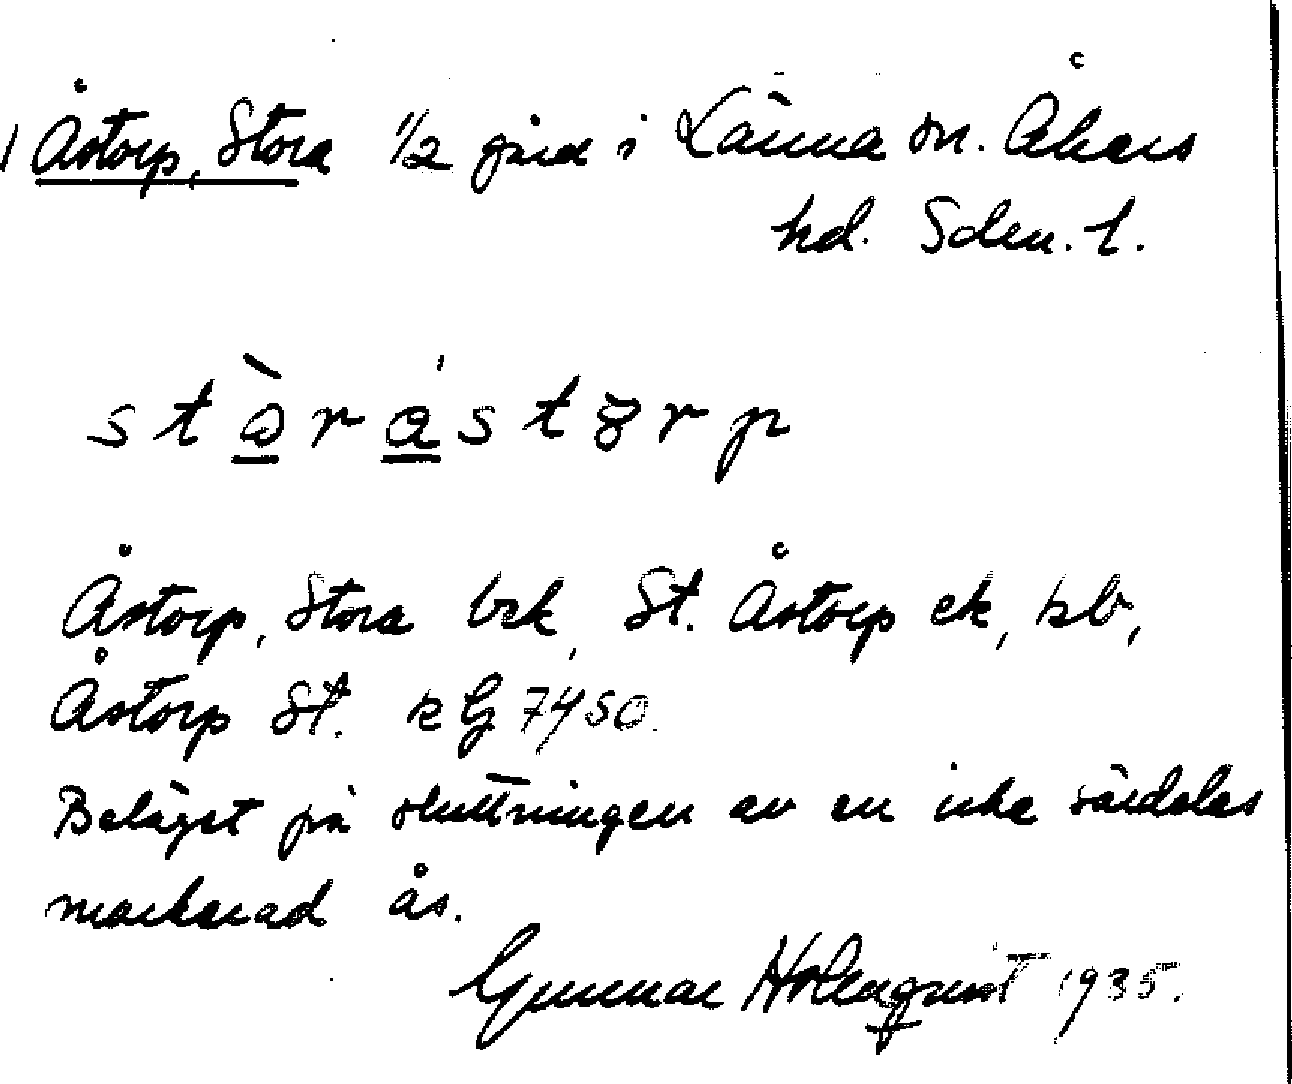 Åstorp, Stora 1/2 gård i Länna sn. Åkers
hd. Sdm. l.
Åstorp, Stora bek, St. Åstorp ek, kb,
Åstorp St. 7450.
Beläget på sluttningen av en icke särdeles
markerad ås.
Gunnar Holmqvist 1935.